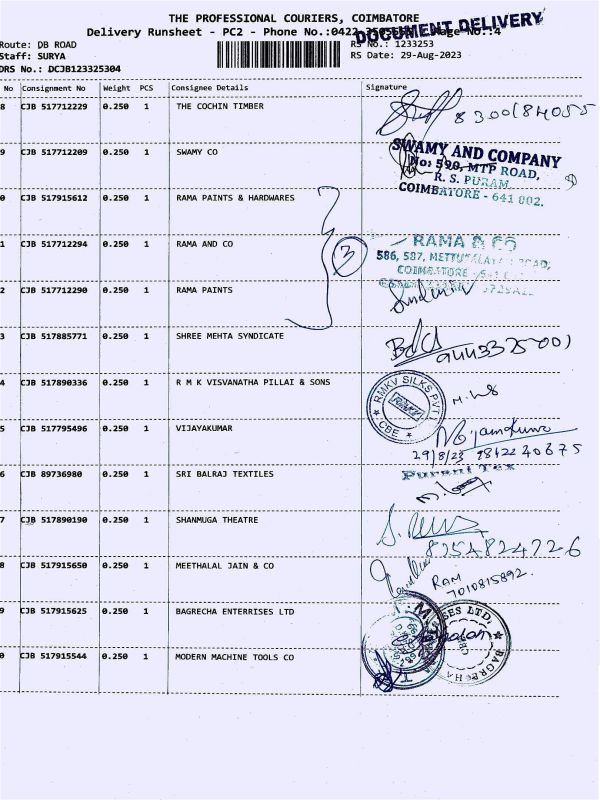 THE PROFESSIONAL COURIERS, COIMBATORE
Delivery Runsheet - PC2 - Phone No.:0422 Page No.:4
DOCUMENT DELIVERY
Route: DB ROAD RS No.: 1233253
Staff: SURYA RS Date: 29-Aug-2023
DRS No.: DCJB123325304
No Consignment No Weight PCS Consignee Details Signature
8 CJB 517712229 0.250 1 THE COCHIN TIMBER 8300184055
9 CJB 517712209 0.250 1 SWAMY CO
SWAMY AND COMPANY
No: 590, MTP ROAD,
R. S. PURAM,
COIMBATORE - 641 002.
0 CJB 517915612 0.250 1 RAMA PAINTS & HARDWARES
3
1 CJB 517712294 0.250 1 RAMA AND CO
RAMA & CO
586, 587, ROAD,
COIMBATORE
2 CJB 517712290 0.250 1 RAMA PAINTS
3 CJB 517885771 0.250 1 SHREE MEHTA SYNDICATE
4 CJB 517890336 0.250 1 R M K VISVANATHA PILLAI & SONS
RMKV SILKS PVT
RMKV
CBE
5 CJB 517795496 0.250 1 VIJAYAKUMAR
29/8/23 9842240675
6 CJB 89736980 0.250 1 SRI BALRAJ TEXTILES
Purani Tex
7 CJB 517890190 0.250 1 SHANMUGA THEATRE
8254824726
8 CJB 517915650 0.250 1 MEETHALAL JAIN & CO
RAM
7010815892.
9 CJB 517915625 0.250 1 BAGRECHA ENTERRISES LTD
0 CJB 517915544 0.250 1 MODERN MACHINE TOOLS CO